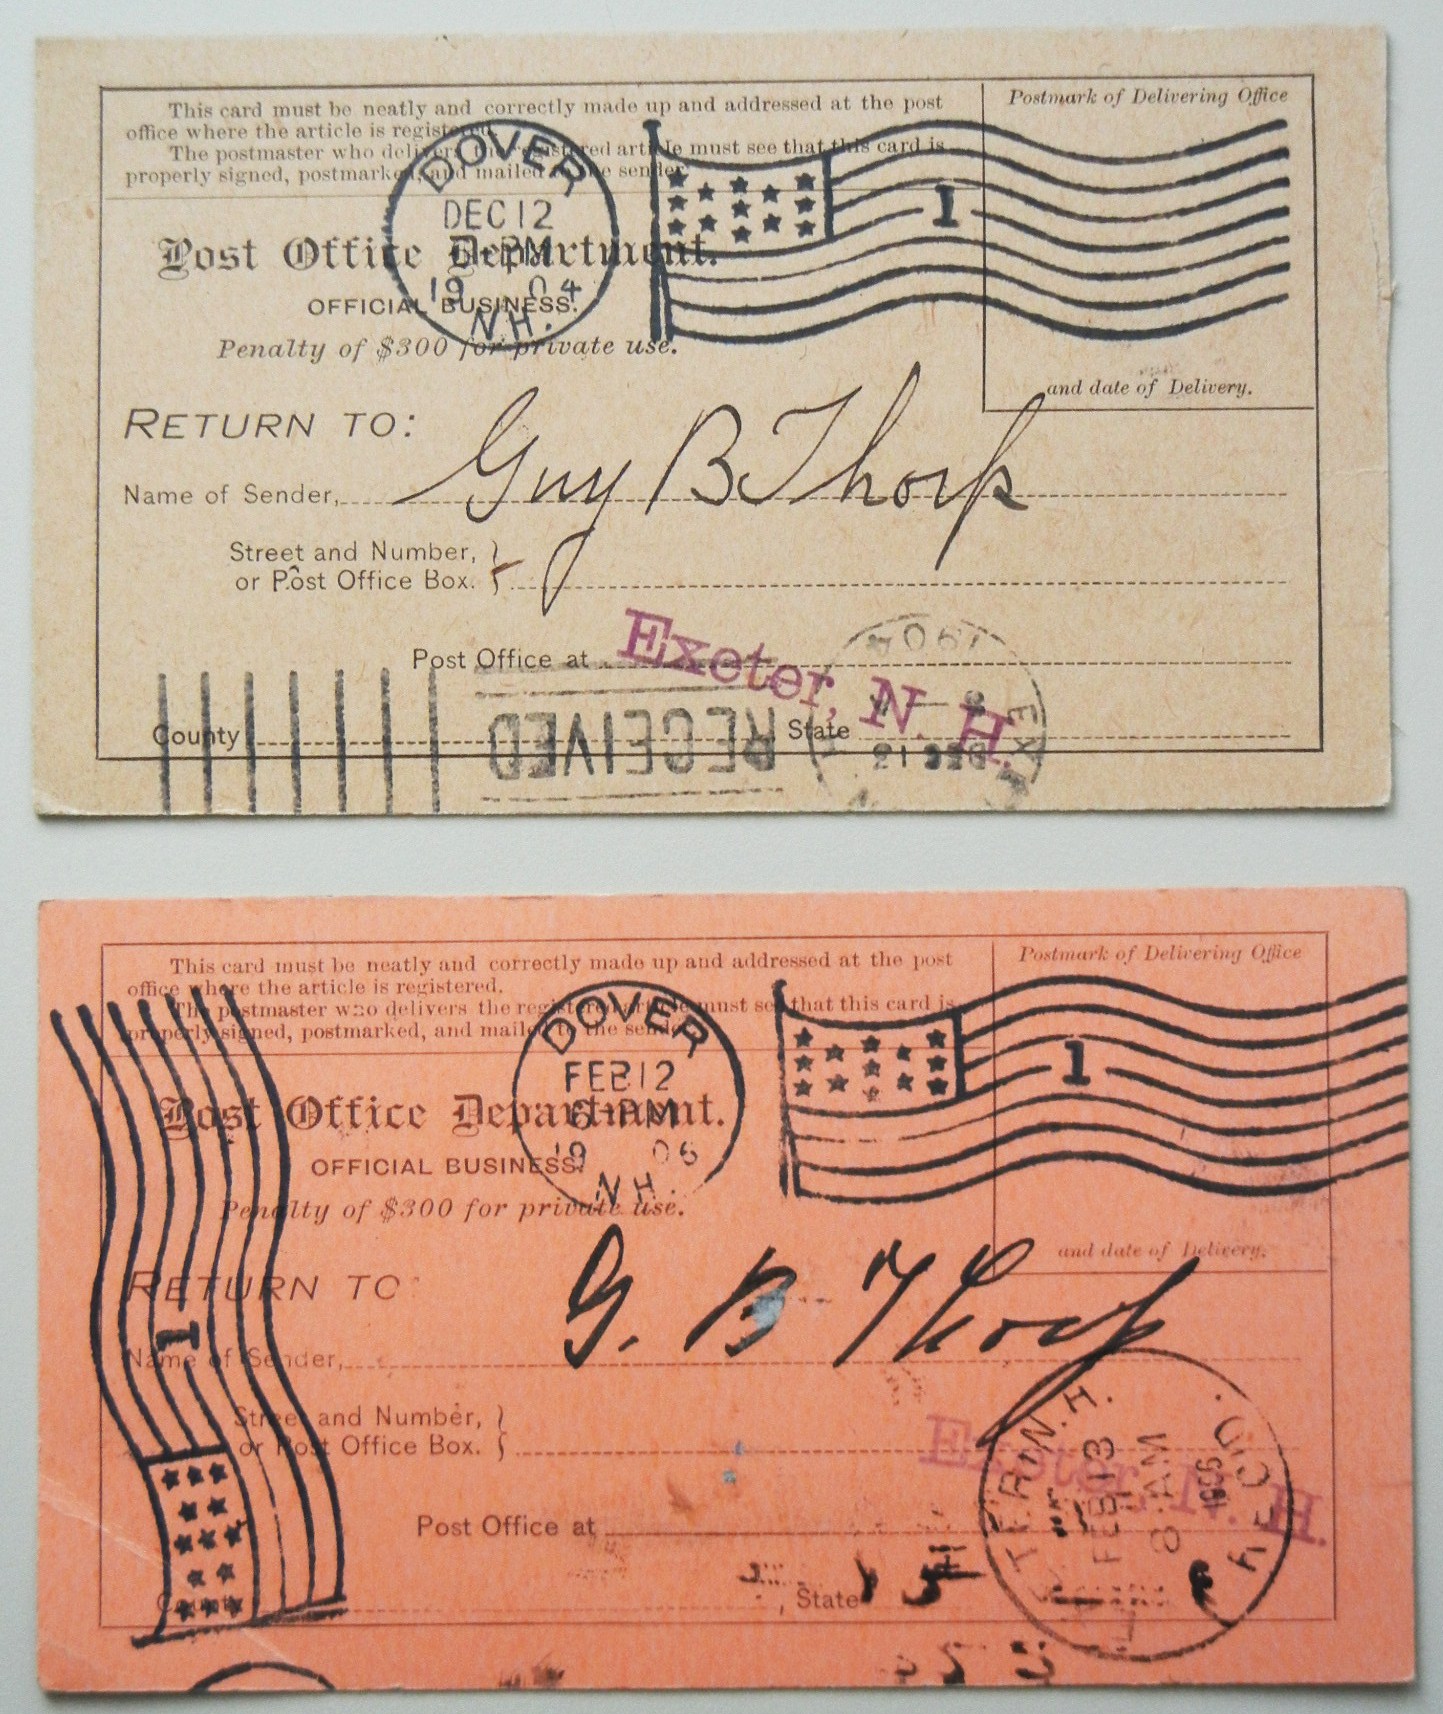 This card must be neatly and correctly made up and addressed at the post
office where the article is registered.
The postmaster who delivers the registered article must see that this card is
properly signed, postmarked, and mailed to the sender.
Postmark of Delivering Office
DOVER
DEC 12
PM
19 04
N.H.
1
Post Office Department.
OFFICIAL BUSINESS.
Penalty of $300 for private use.
and date of Delivery.
RETURN TO:
Name of Sender, Guy B Thorp
Street and Number,
or Post Office Box.
Post Office at
Exeter, N. H.
County State
RECEIVED
1904
This card must be neatly and correctly made up and addressed at the post
office where the article is registered.
The postmaster who delivers the registered article must see that this card is
properly signed, postmarked, and mailed to the sender.
Postmark of Delivering Office
DOVER
FEB 12
6-PM
19 06
N.H.
1
Post Office Department.
OFFICIAL BUSINESS.
Penalty of $300 for private use.
and date of Delivery.
RETURN TO:
1
Name of Sender, G. B Thorp
Street and Number,
or Post Office Box.
Exeter, N. H.
Post Office at
County State
N.H.
FEB 13
8-AM
1906
REC'D.